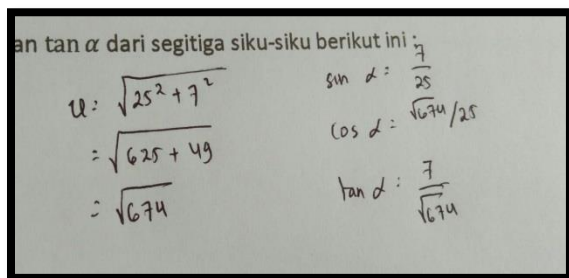 an tan α dari segitiga siku-siku berikut ini :
u = √(25² + 7²)
= √(625 + 49)
= √674
sin α = 7/25
cos α = √674/25
tan α = 7/√674